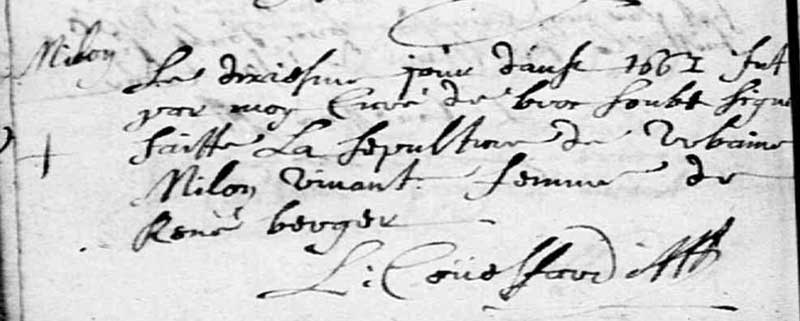 Milon
Le dixiesme jour d'aust 1661 fut
par moy Curé de broc soubs signé
faitte La sepulture de Urbaine
Milon vivant femme de
René berger
L: Coüeffard